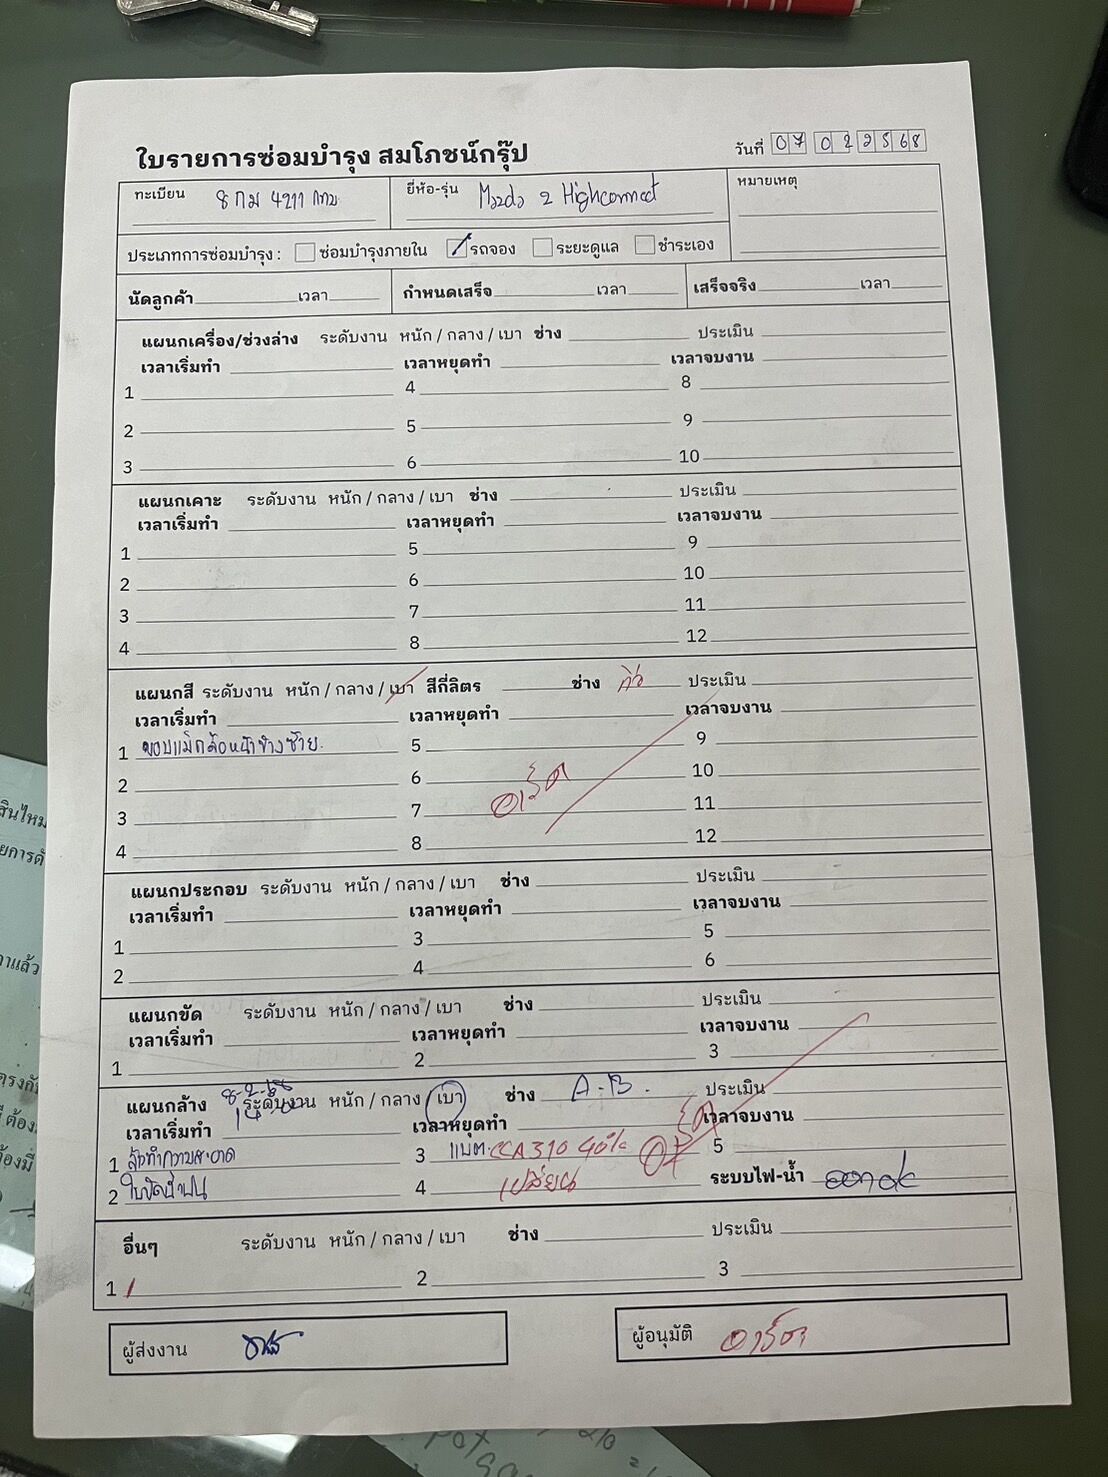 ใบรายการซ่อมบำรุง สมโภชน์กรุ๊ป
วันที่ 07 02 2568
ทะเบียน 8 กม 4211 กทม
ยี่ห้อ-รุ่น Mazda 2 Highconnect
หมายเหตุ
ประเภทการซ่อมบำรุง : ซ่อมบำรุงภายใน รถจอง ระยะดูแล ชำระเอง
นัดลูกค้า เวลา กำหนดเสร็จ เวลา เสร็จจริง เวลา
แผนกเครื่อง/ช่วงล่าง ระดับงาน หนัก / กลาง / เบา ช่าง ประเมิน
เวลาเริ่มทำ เวลาหยุดทำ เวลาจบงาน
1 4 8
2 5 9
3 6 10
แผนกเคาะ ระดับงาน หนัก / กลาง / เบา ช่าง ประเมิน
เวลาเริ่มทำ เวลาหยุดทำ เวลาจบงาน
1 5 9
2 6 10
3 7 11
4 8 12
แผนกสี ระดับงาน หนัก / กลาง / เบา สีกี่ลิตร ช่าง ประเมิน
เวลาเริ่มทำ เวลาหยุดทำ เวลาจบงาน
1 ขอบแม็กล้อหน้าข้างซ้าย 5 9
2 6 10
3 7 11
4 8 12
แผนกประกอบ ระดับงาน หนัก / กลาง / เบา ช่าง ประเมิน
เวลาเริ่มทำ เวลาหยุดทำ เวลาจบงาน
1 3 5
2 4 6
แผนกขัด ระดับงาน หนัก / กลาง / เบา ช่าง ประเมิน
เวลาเริ่มทำ เวลาหยุดทำ เวลาจบงาน
1 2 3
แผนกล้าง 8-2-68 ระดับงาน หนัก / กลาง / เบา ช่าง A-B. ประเมิน
เวลาเริ่มทำ เวลาหยุดทำ เวลาจบงาน
1 ล้างทำความสะอาด 3 แบต. CCA 310 40% 5
2 ใบปัดน้ำฝน 4 เปลี่ยน ระบบไฟ-น้ำ
อื่นๆ ระดับงาน หนัก / กลาง / เบา ช่าง ประเมิน
1 2 3
ผู้ส่งงาน
ผู้อนุมัติ